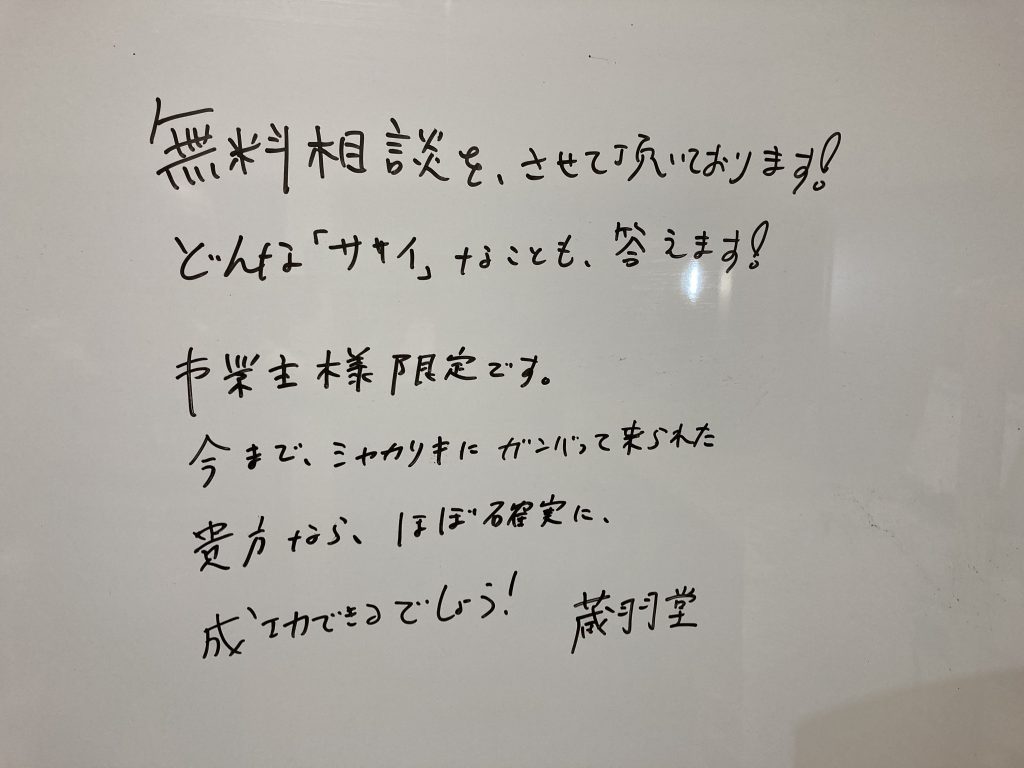 無料相談を、させて頂いております!
どんな「ササイ」なことも、答えます!
事業主様限定です。
今まで、ミャカリキにガンバって来られた
貴方なら、ほぼ確実に、
成功できるでしょう! 蔵羽堂